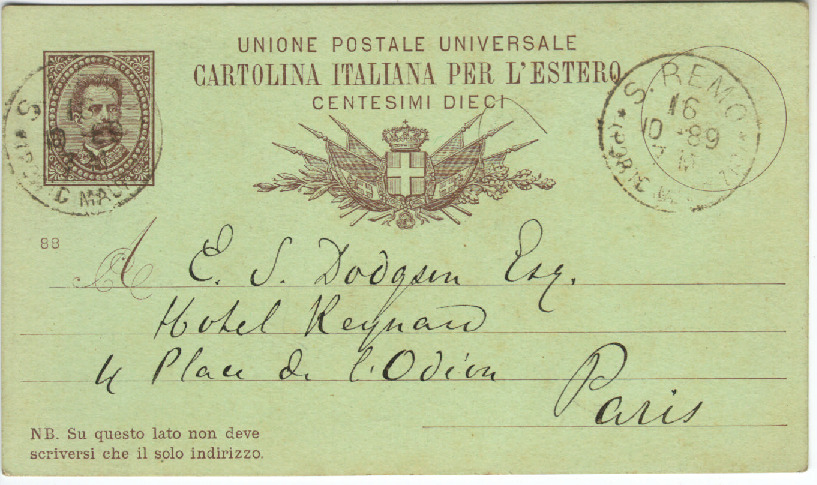 UNIONE POSTALE UNIVERSALE
CARTOLINA ITALIANA PER L'ESTERO
CENTESIMI DIECI
S. REMO
16
10 -89
88
A E. S. Dodgson Esq.
Hotel Reynard
4 Place de l'Odéon
Paris
NB. Su questo lato non deve
scriversi che il solo indirizzo.